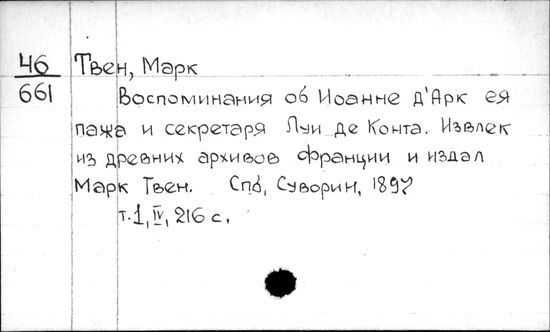 46 Твен, Марк
661
Воспоминания об Иоанне д'Арк ея
пажа и секретаря Луи де Конта. Извлек
из древних архивов Франции и издал
Марк Твен. Спб, Суворин, 1897
т.1, IV, 216 с.